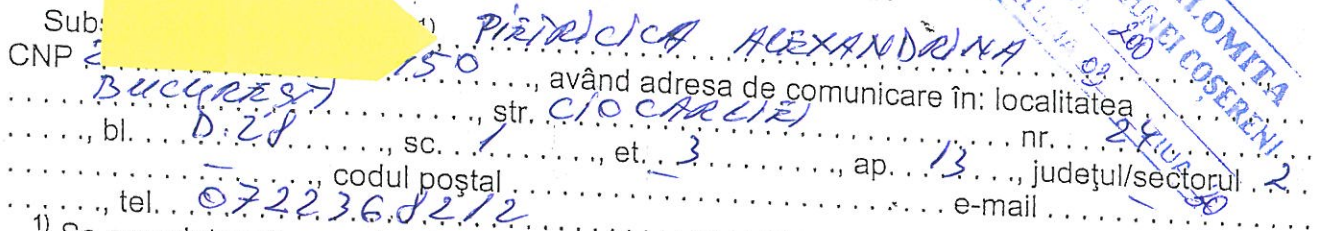 Subs 1) PIETRICICA ALEXANDRINA
CNP 2 150, având adresa de comunicare în: localitatea
BUCUREȘTI, str. CIOCARLIEI nr. 24
, bl. D.28, sc. 1, et. 3, ap. 13, județul/sectorul 2
–, codul poștal – e-mail –
, tel. 0722368212
1)
IALOMIȚA
COȘERENI
200
03
ZIUA 30